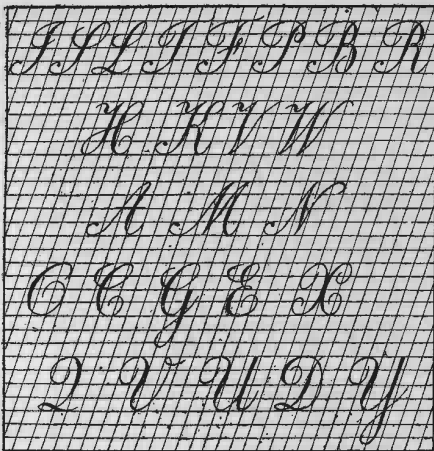 I S L T F P B R
H K V W
A M N
O C G E X
Q V U D Y